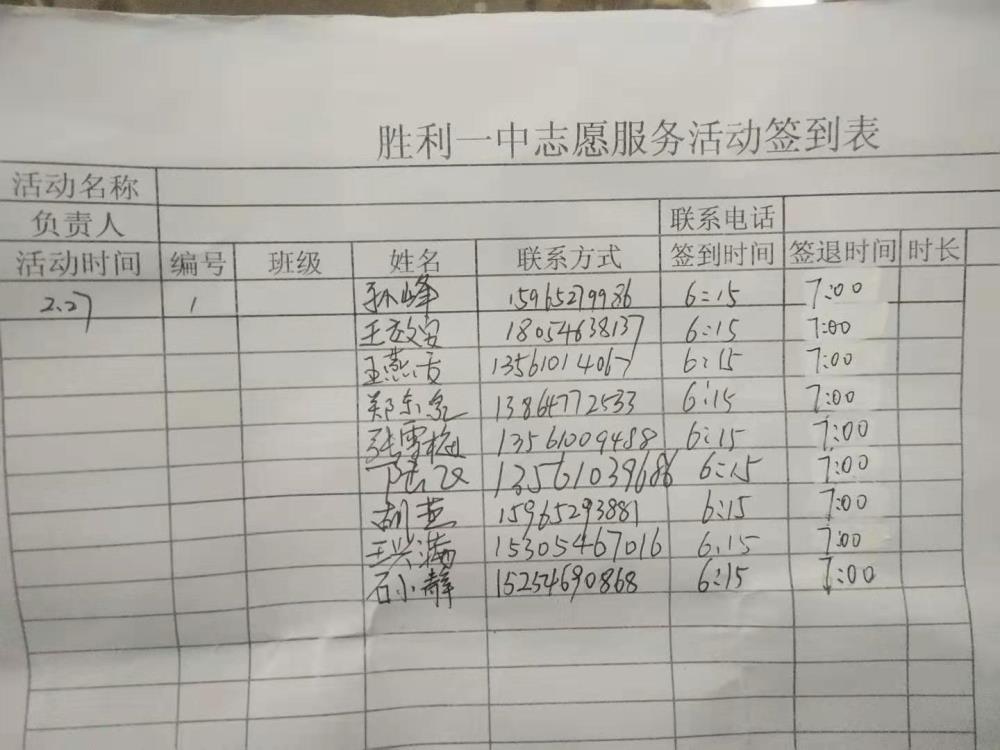 胜利一中志愿服务活动签到表
活动名称
负责人 联系电话
活动时间 编号 班级 姓名 联系方式 签到时间 签退时间 时长
2.27 1 孙峰 15965279986 6:15 7:00
王效安 18054638137 6:15 7:00
王燕 13561014067 6:15 7:00
郑东 13864772533 6:15 7:00
张雪梅 13561009488 6:15 7:00
13561039686 6:15 7:00
胡燕 15965293881 6:15 7:00
王兴满 15305467016 6.15 7:00
石小静 15254690868 6:15 7:00